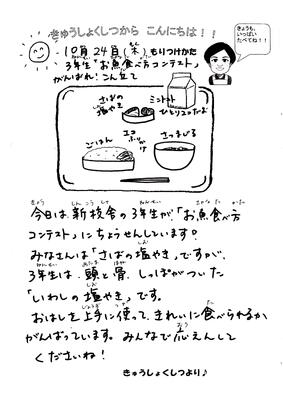 きゅうしょくしつから こんにちは！！
きょうも、
いっぱい
たべてね！！
10月24日(木)もりつけかた
3年生「お魚食べ方コンテスト」
がんばれ！こんだて
さばの
塩やき
ミニトマト
ひとり2つだよ
ごはん
エコ
ふりかけ
さつまじる
今日は、新校舎の3年生が、「お魚食べ方
コンテスト」にちょうせんしています。
みなさんは「さばの塩やき」ですが、
3年生は、頭と骨、しっぽがついた
「いわしの塩やき」です。
おはしを上手に使って、きれいに食べられるか、
がんばっています。みんなで応えんして
くださいね！
きゅうしょくしつより♪